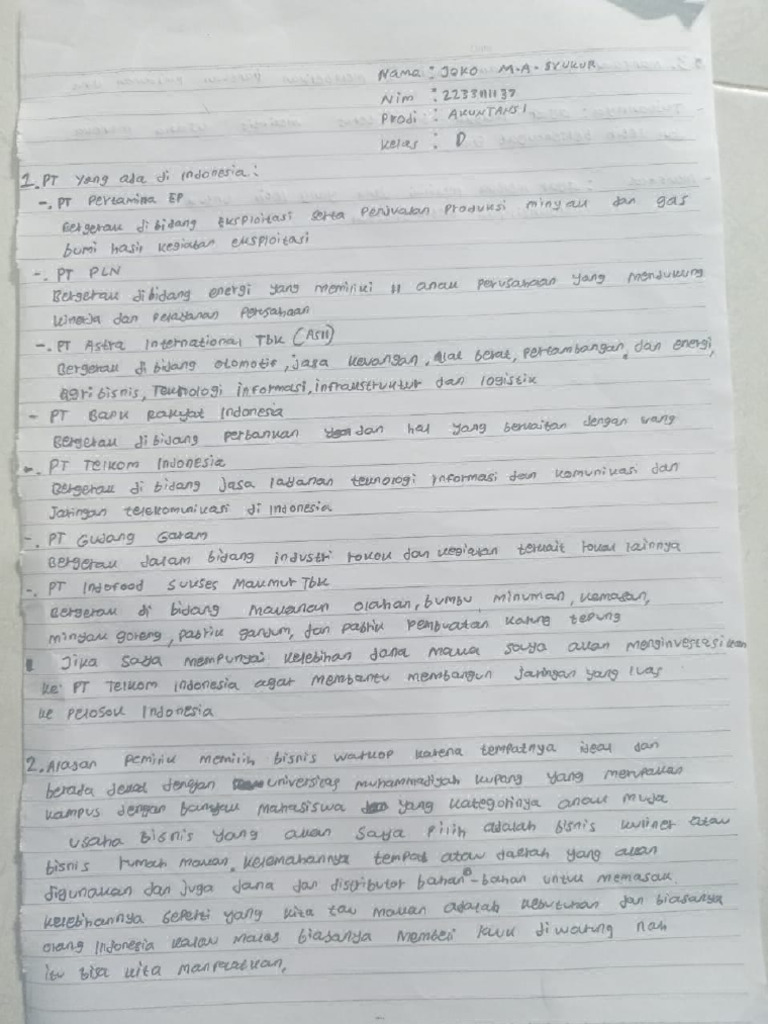 Nama : JOKO M.A. SYUKUR
Nim : 223311137
Prodi : AKUNTANSI
Kelas : D
1. PT yang ada di Indonesia :
-. PT Pertamina EP
Bergerak dibidang Eksploitasi serta Penjualan Produksi minyak dan gas
bumi hasil kegiatan eksploitasi
-. PT PLN
Bergerak dibidang energi yang memiliki 11 anak perusahaan yang mendukung
kinerja dan pelayanan perusahaan
-. PT Astra International Tbk (ASII)
Bergerak di bidang otomotif, jasa keuangan, alat berat, pertambangan, dan energi,
agribisnis, Teknologi informasi, infrastruktur dan logistik
- PT Bank Rakyat Indonesia
Bergerak dibidang perbankan dan hal yang berkaitan dengan uang
-. PT Telkom Indonesia
Bergerak di bidang jasa layanan teknologi informasi dan komunikasi dan
Jaringan telekomunikasi di Indonesia
-. PT Gudang Garam
Bergerak dalam bidang industri rokok dan kegiatan terkait rokok lainnya
-. PT Indofood Sukses Makmur Tbk
Bergerak di bidang makanan olahan, bumbu, minuman, kemasan,
minyak goreng, pabrik gandum, dan pabrik pembuatan karung tepung
Jika saya mempunyai kelebihan dana maka saya akan menginvestasikan
ke PT Telkom Indonesia agar membantu membangun jaringan yang luas
ke pelosok Indonesia
2. Alasan pemilik memilih bisnis warkop karena tempatnya ideal dan
berada dekat dengan universitas muhammadiyah kupang yang merupakan
kampus dengan banyak mahasiswa yang kategorinya anak muda
usaha bisnis yang akan saya pilih adalah bisnis kuliner atau
bisnis rumah makan. kelemahannya tempat atau daerah yang akan
digunakan dan juga dana dan distributor bahan-bahan untuk memasak.
kelebihannya seperti yang kita tau makan adalah kebutuhan dan biasanya
orang Indonesia kalau malas biasanya membeli di warung nah
itu bisa kita manfaatkan.